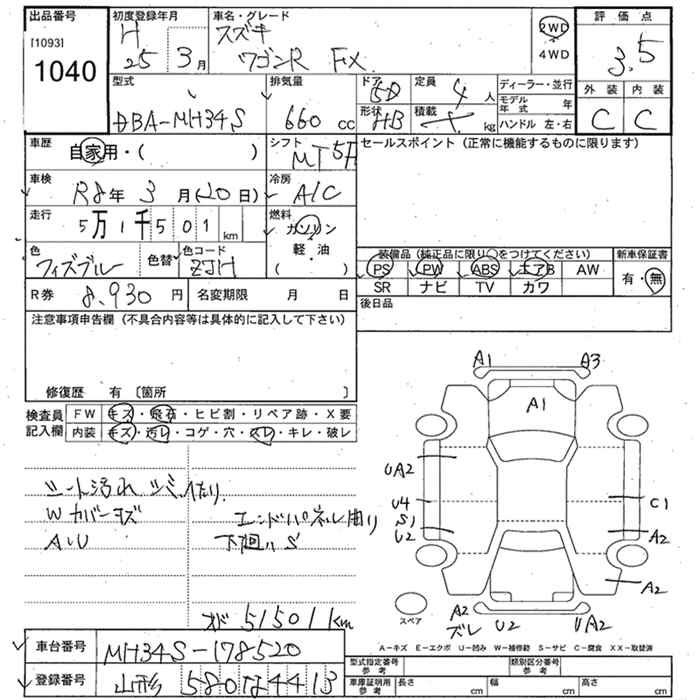 出品番号 [1093] 1040
初度登録年月 H 25 3月
車名・グレード スズキ ワゴンR FX
2WD・4WD
評価点 3.5
外装 C 内装 C
型式 DBA-MH34S
排気量 660 cc
ドア 5D
形状 HB
定員 4人
積載 kg
ディーラー・並行
モデル年式 年
ハンドル 左・右
車歴 自家用・( )
シフト MT 5F
セールスポイント (正常に機能するものに限ります)
車検 R8年 3月(20日)
冷房 A/C
走行 5万1千501km
燃料 ガソリン・軽油 ( )
色 フィズブル 色替
色コード ZJH
装備品(純正品に限り○をつけてください)
PS PW ABS エアB AW
SR ナビ TV カワ
新車保証書 有・無
R券 8,930円
名変期限 月 日
後日品
注意事項申告欄(不具合内容等は具体的に記入して下さい)
修復歴 有〔箇所 〕
検査員記入欄
FW キズ・飛石・ヒビ割・リペア跡・X要
内装 キズ・汚レ・コゲ・穴・スレ・キレ・破レ
シート汚れ シミ有り
Wカバーキズ エンドパネル曲り
AU 下廻りS
オド 51501km
A1 A3
A1
UA2
U4
S1
U2
C1
A2
A2
A2 ズレ U2 UA2
スペア
A-キズ E-エクボ U-凹み W-補修跡 S-サビ C-腐食 XX-取替済
車台番号 MH34S-178520
登録番号 山形 580な4413
型式指定番号 参考
類別区分番号 参考
車庫証明用 参考 長さ cm 幅 cm 高さ cm